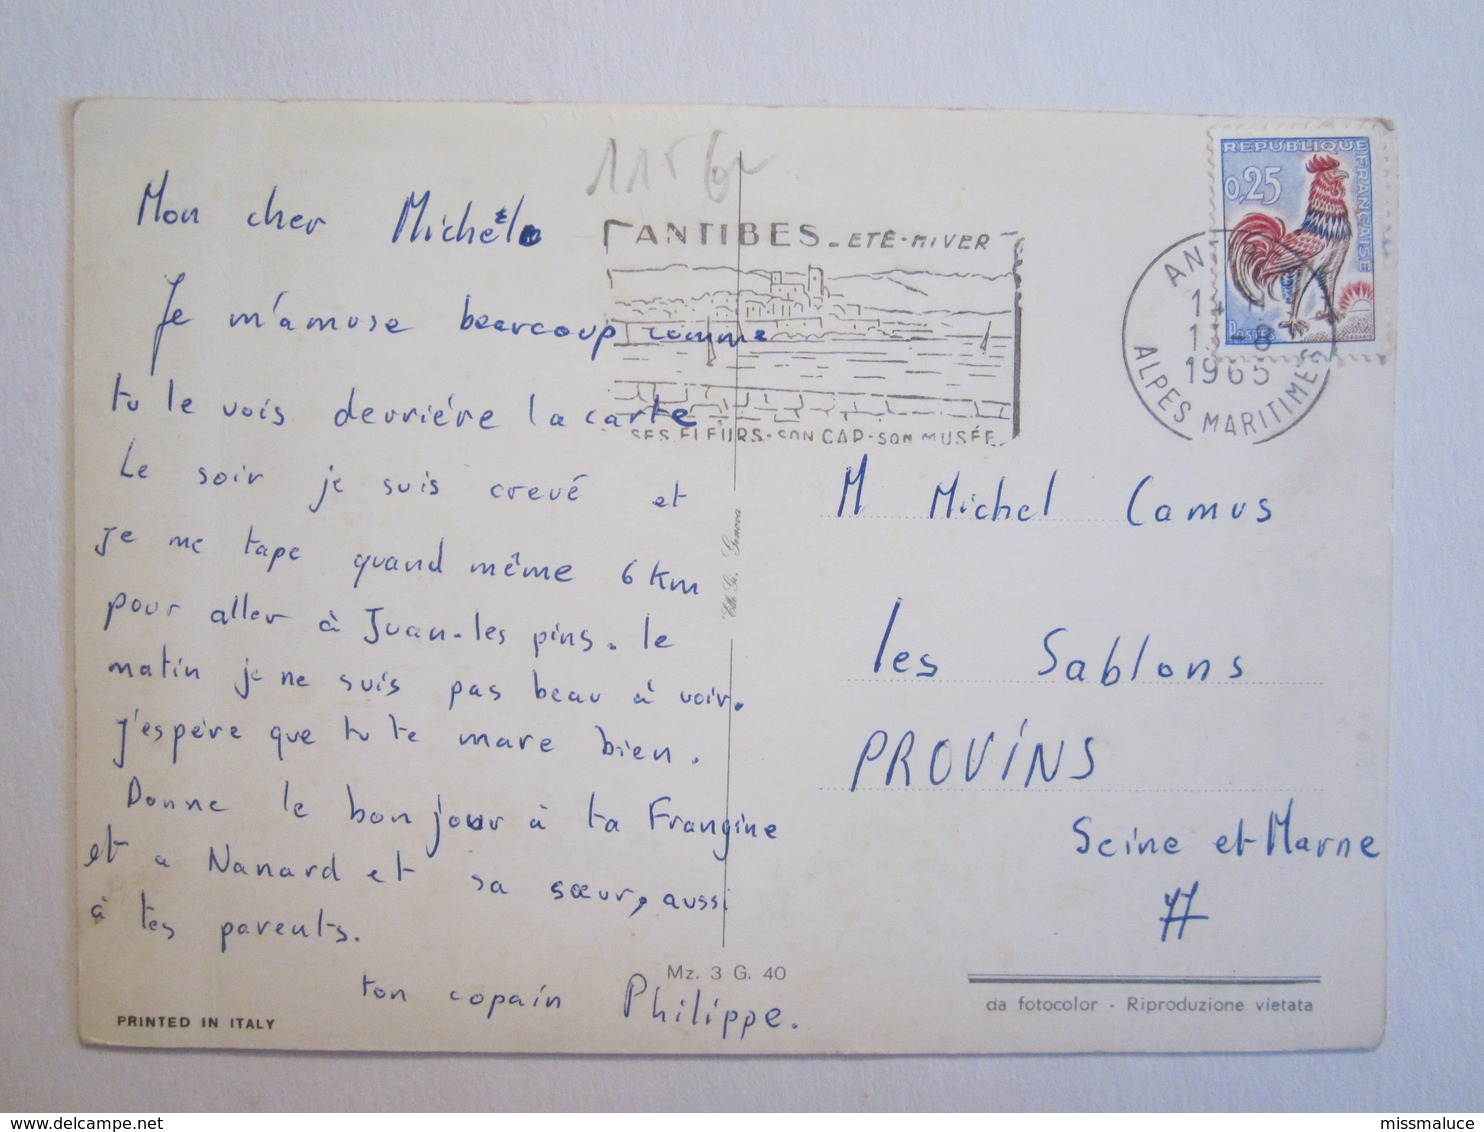 1156
Mon cher Michel
Je m'amuse beaucoup comme
tu le vois derrière la carte.
Le soir je suis crevé et
je me tape quand même 6 km
pour aller à Juan-les pins. le
matin je ne suis pas beau à voir.
j'espère que tu te mare bien.
Donne le bonjour à ta Frangine
et a Nanard et sa sœur, aussi
à tes parents.
ton copain Philippe.
PRINTED IN ITALY
ANTIBES - ETE - HIVER
SES FLEURS - SON CAP - SON MUSÉE
Edit. G. Genova
Mz. 3 G. 40
REPUBLIQUE
FRANÇAISE
0,25
POSTES
AN
-8
1965
ALPES MARITIMES
M Michel Camus
les Sablons
PROVINS
Seine et Marne
77
da fotocolor - Riproduzione vietata
missmaluce